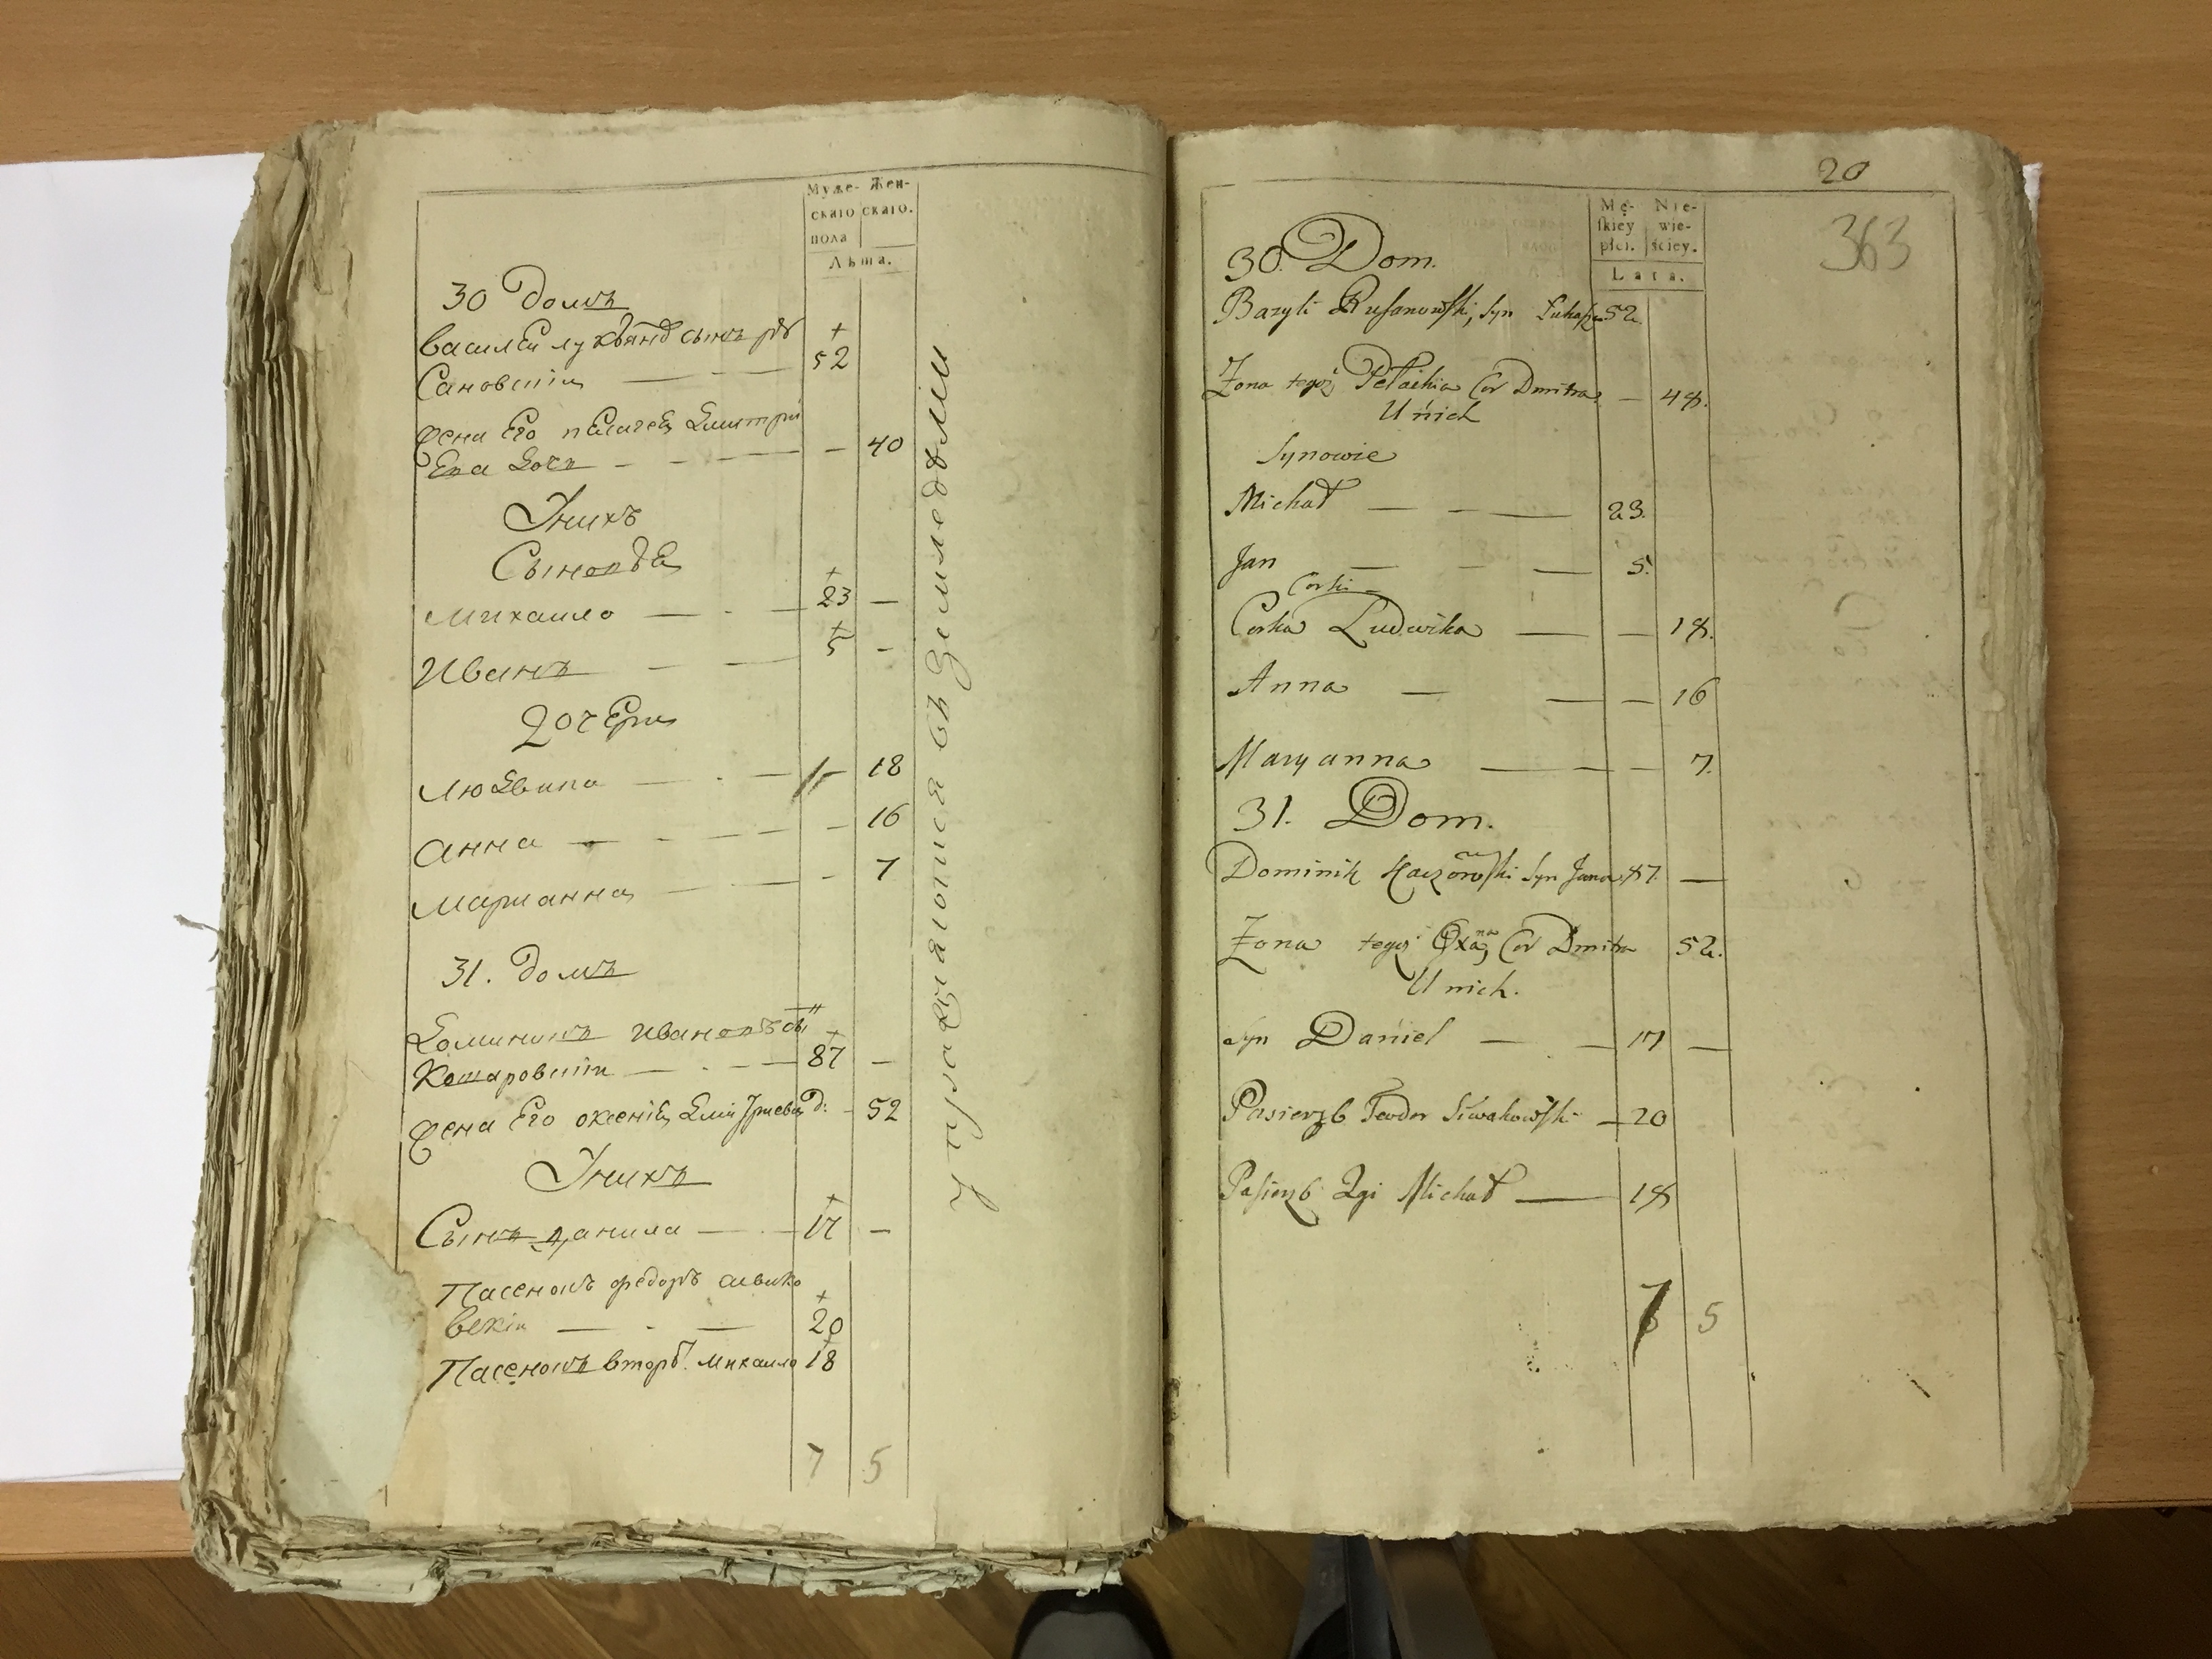 Муже-
скаго
пола
Жен-
скаго.
Лѣта.
30 Домъ
Василей Лукьянов сынъ Ру
Сановскій — — — 52
Жена Его Пелагея Дмитрі
Ева Дочь — — — — 40
У нихъ
Сыновья
Михаило — — — 23 —
Иванъ — — 5 —
Дочери
Людвика — — — 18
Анна — — — — 16
Марианна — — — 7
31. Домъ
Доминикъ Ивановъ сы
— — — 87 —
Жена Его Оксенія Дмитриева д: — 52
У нихъ
Сынъ Данила — — 17 —
Пасенокъ Федоръ Сивако
вскій — — — 20
Пасенокъ вторы. Михаило 18
7 5
упражняются въ земледѣліи
20
363
Mę-
skiey
płci.
Nie-
wie-
ściey.
Lata.
30. Dom.
Bazyli Rusanowski, syn Łukasza 52.
Żona tegoż Pelaihia Cór Dmitra — 48.
U nich
Synowie
Michał — — — 23.
Jan — — — 5.
Corki
Corka Ludwika — — 18.
Anna — — — 16
Maryanna — — — 7.
31. Dom.
Dominik syn Jana 87. —
Żona tegoż Oxana Cór Dmitra 52.
U nich.
Syn Daniel — — 17 —
Pasierzb Teodor Siwakowski — 20
Pasierzb 2gi Michał — 18
7 5